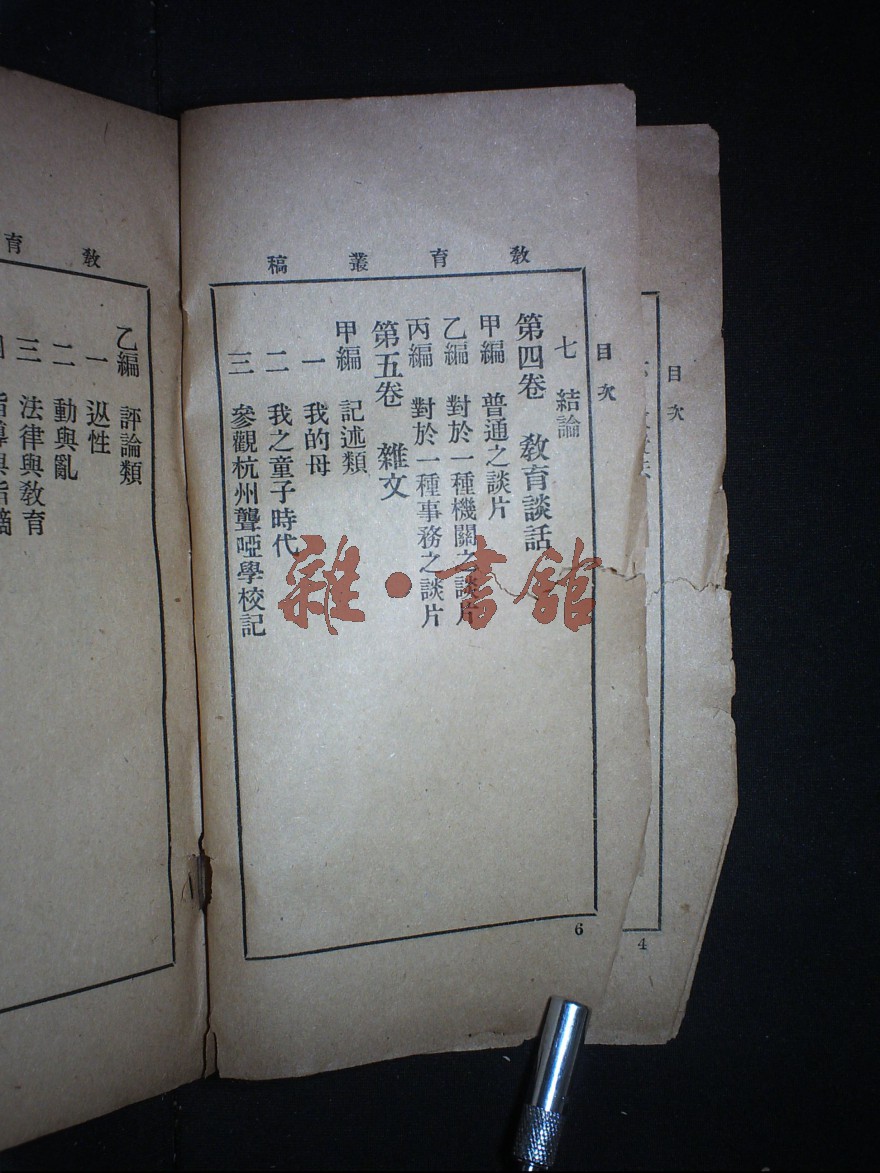 教育叢稿
目次
七 結論
第四卷 教育談話
甲編 普通之談片
乙編 對於一種機關之談片
丙編 對於一種事務之談片
第五卷 雜文
甲編 記述類
一 我的母
二 我之童子時代
三 參觀杭州聾啞學校記
6
教育
乙編 評論類
一 㳂性
二 動與亂
三 法律與教育
指導與指摘
目次
4
雜·書館